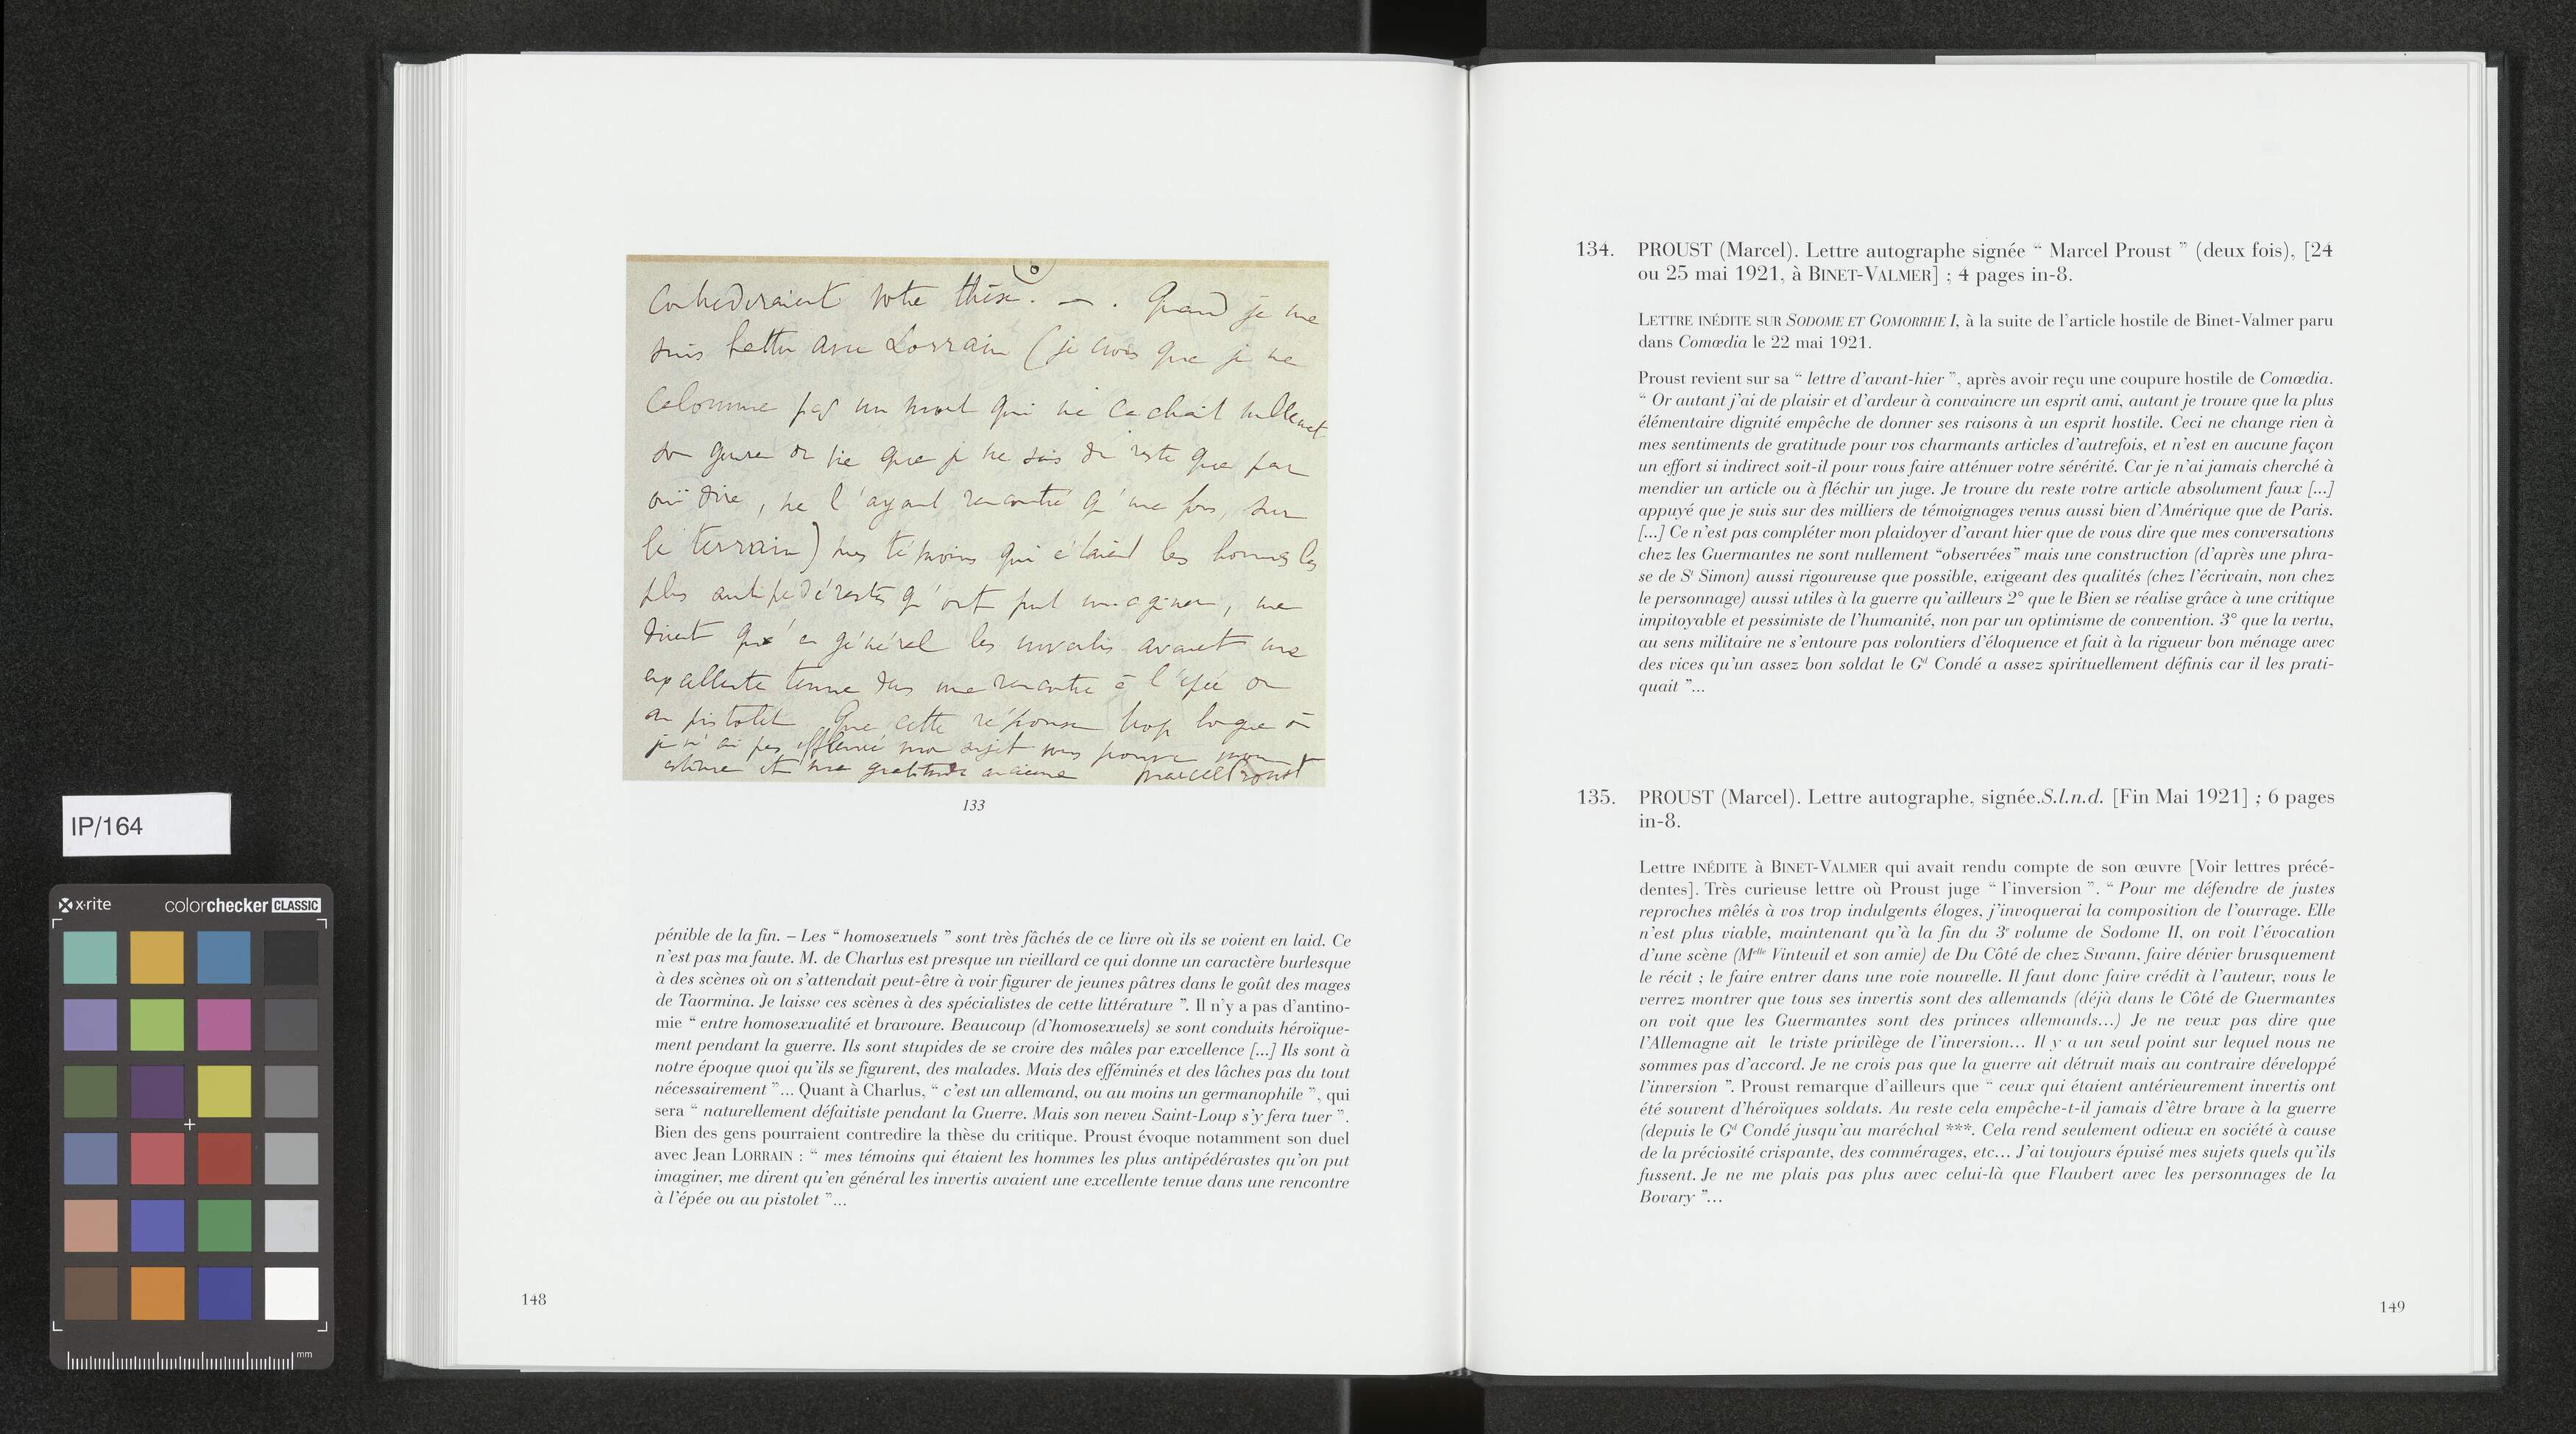 contrediraient votre thèse. — . Quand je me
suis battu avec Lorrain (je crois que je ne
calomnie pas un mort qui ne cachait nullement
son genre de vie que je ne sais du reste que par
ouï dire, ne l'ayant rencontré qu'une fois, sur
le terrain) mes témoins qui étaient les hommes les
plus antipédérastes qu'ont put imaginer, me
dirent qu'en général les invertis avaient une
excellente tenue dans une rencontre à l'épée ou
au pistolet. Que cette réponse trop longue où
je n'ai pas effleuré mon sujet vous prouve mon
estime et ma gratitude ancienne Marcel Proust
133
pénible de la fin. – Les “ homosexuels ” sont très fâchés de ce livre où ils se voient en laid. Ce
n'est pas ma faute. M. de Charlus est presque un vieillard ce qui donne un caractère burlesque
à des scènes où on s'attendait peut-être à voir figurer de jeunes pâtres dans le goût des mages
de Taormina. Je laisse ces scènes à des spécialistes de cette littérature ”. Il n'y a pas d'antino-
mie “ entre homosexualité et bravoure. Beaucoup (d'homosexuels) se sont conduits héroïque-
ment pendant la guerre. Ils sont stupides de se croire des mâles par excellence [...] Ils sont à
notre époque quoi qu'ils se figurent, des malades. Mais des efféminés et des lâches pas du tout
nécessairement ”... Quant à Charlus, “ c'est un allemand, ou au moins un germanophile ”, qui
sera “ naturellement défaitiste pendant la Guerre. Mais son neveu Saint-Loup s'y fera tuer ”.
Bien des gens pourraient contredire la thèse du critique. Proust évoque notamment son duel
avec Jean LORRAIN : “ mes témoins qui étaient les hommes les plus antipédérastes qu'on put
imaginer, me dirent qu'en général les invertis avaient une excellente tenue dans une rencontre
à l'épée ou au pistolet ”...
148
134. PROUST (Marcel). Lettre autographe signée “ Marcel Proust ” (deux fois), [24
ou 25 mai 1921, à BINET-VALMER] ; 4 pages in-8.
LETTRE INÉDITE SUR SODOME ET GOMORRHE I, à la suite de l'article hostile de Binet-Valmer paru
dans Comœdia le 22 mai 1921.
Proust revient sur sa “ lettre d'avant-hier ”, après avoir reçu une coupure hostile de Comœdia.
“ Or autant j'ai de plaisir et d'ardeur à convaincre un esprit ami, autant je trouve que la plus
élémentaire dignité empêche de donner ses raisons à un esprit hostile. Ceci ne change rien à
mes sentiments de gratitude pour vos charmants articles d'autrefois, et n'est en aucune façon
un effort si indirect soit-il pour vous faire atténuer votre sévérité. Car je n'ai jamais cherché à
mendier un article ou à fléchir un juge. Je trouve du reste votre article absolument faux [...]
appuyé que je suis sur des milliers de témoignages venus aussi bien d'Amérique que de Paris.
[...] Ce n'est pas compléter mon plaidoyer d'avant hier que de vous dire que mes conversations
chez les Guermantes ne sont nullement “observées” mais une construction (d'après une phra-
se de St Simon) aussi rigoureuse que possible, exigeant des qualités (chez l'écrivain, non chez
le personnage) aussi utiles à la guerre qu'ailleurs 2° que le Bien se réalise grâce à une critique
impitoyable et pessimiste de l'humanité, non par un optimisme de convention. 3° que la vertu,
au sens militaire ne s'entoure pas volontiers d'éloquence et fait à la rigueur bon ménage avec
des vices qu'un assez bon soldat le Gd Condé a assez spirituellement définis car il les prati-
quait ”...
135. PROUST (Marcel). Lettre autographe, signée.S.l.n.d. [Fin Mai 1921] ; 6 pages
in-8.
Lettre INÉDITE à BINET-VALMER qui avait rendu compte de son œuvre [Voir lettres précé-
dentes]. Très curieuse lettre où Proust juge “ l'inversion ”. “ Pour me défendre de justes
reproches mêlés à vos trop indulgents éloges, j'invoquerai la composition de l'ouvrage. Elle
n'est plus viable, maintenant qu'à la fin du 3e volume de Sodome II, on voit l'évocation
d'une scène (Melle Vinteuil et son amie) de Du Côté de chez Swann, faire dévier brusquement
le récit ; le faire entrer dans une voie nouvelle. Il faut donc faire crédit à l'auteur, vous le
verrez montrer que tous ses invertis sont des allemands (déjà dans le Côté de Guermantes
on voit que les Guermantes sont des princes allemands...) Je ne veux pas dire que
l'Allemagne ait le triste privilège de l'inversion... Il y a un seul point sur lequel nous ne
sommes pas d'accord. Je ne crois pas que la guerre ait détruit mais au contraire développé
l'inversion ”. Proust remarque d'ailleurs que “ ceux qui étaient antérieurement invertis ont
été souvent d'héroïques soldats. Au reste cela empêche-t-il jamais d'être brave à la guerre
(depuis le Gd Condé jusqu'au maréchal ***. Cela rend seulement odieux en société à cause
de la préciosité crispante, des commérages, etc... J'ai toujours épuisé mes sujets quels qu'ils
fussent. Je ne me plais pas plus avec celui-là que Flaubert avec les personnages de la
Bovary ”...
149
IP/164
x-rite colorchecker CLASSIC
mm